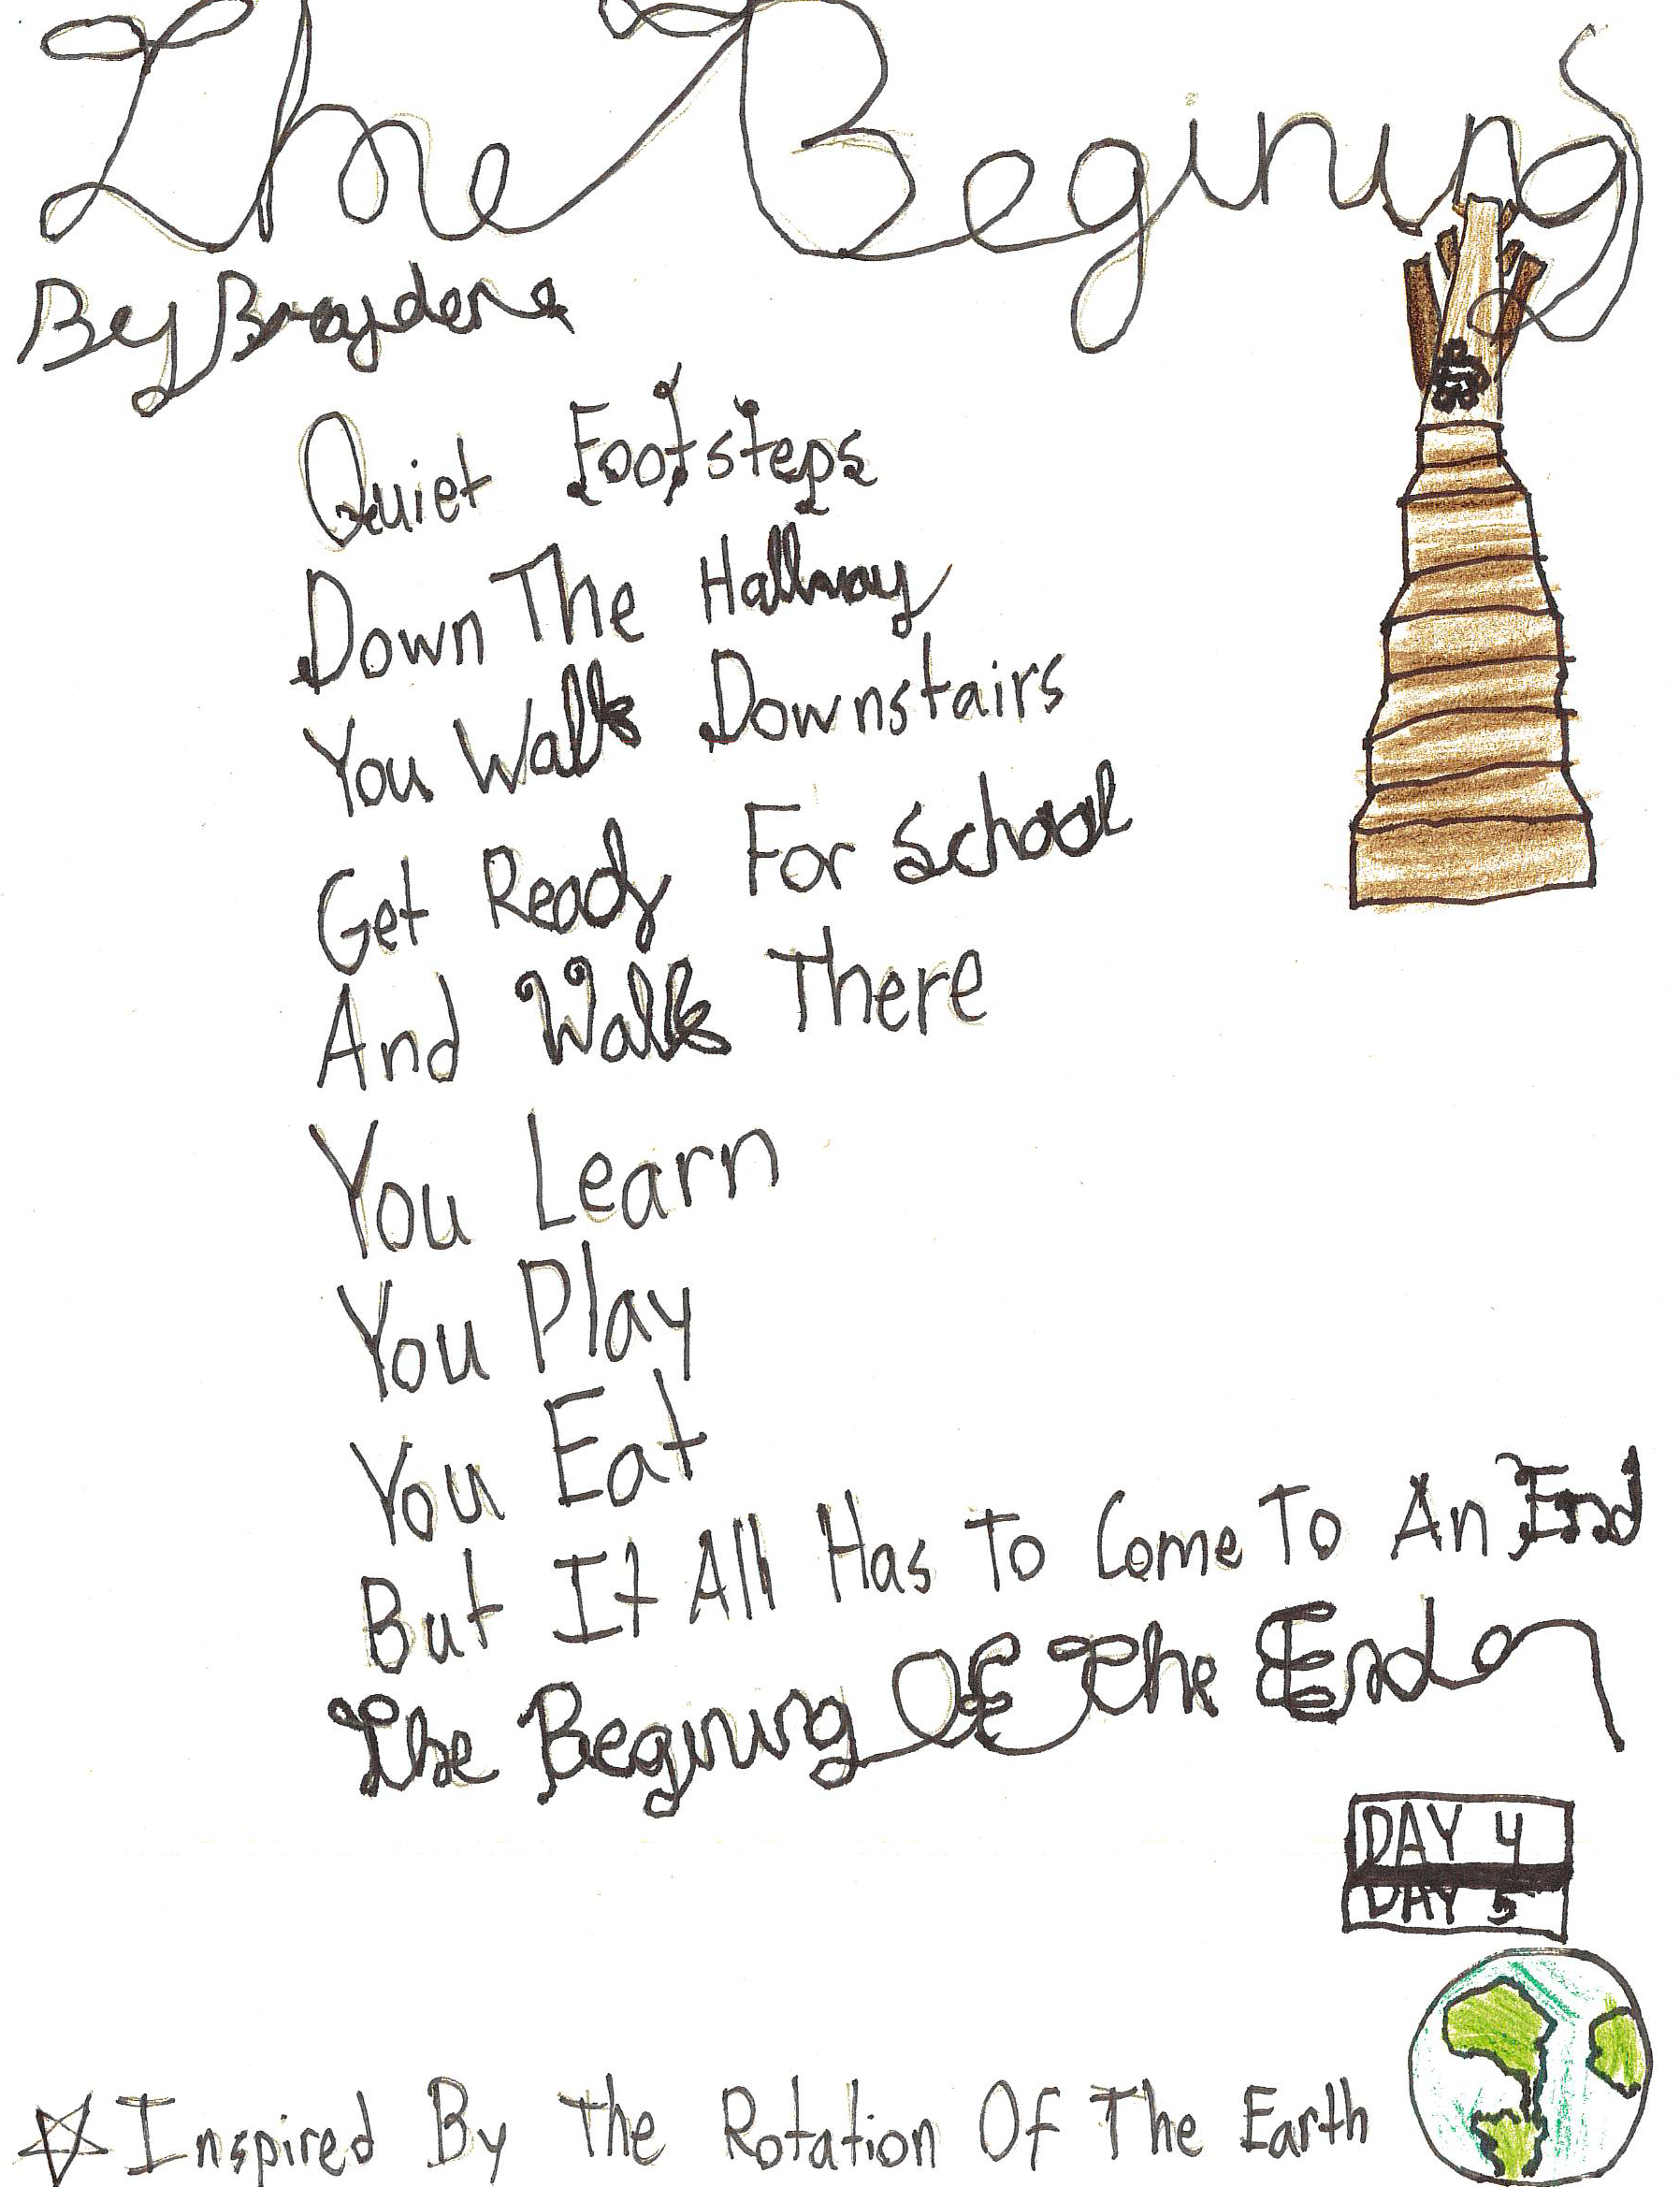 The Begining
By Brayden
Quiet Footsteps
Down The Hallway
You Walk Downstairs
Get Ready For School
And Walk There
You Learn
You Play
You Eat
But It All Has To Come To An End
The Begining Of The End
DAY 4
DAY 5
Inspired By The Rotation Of The Earth